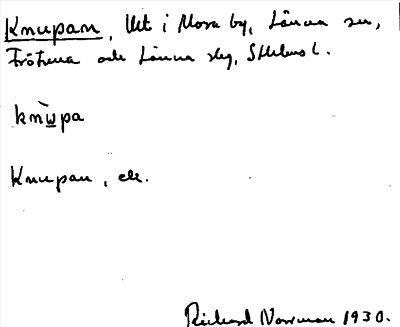 Knupan, Utt i Mora by, Länna sn,
Frötuna och Länna slg, Sthlms l.
knùpa
Knupan, ek.
Rickard Norrman 1930.